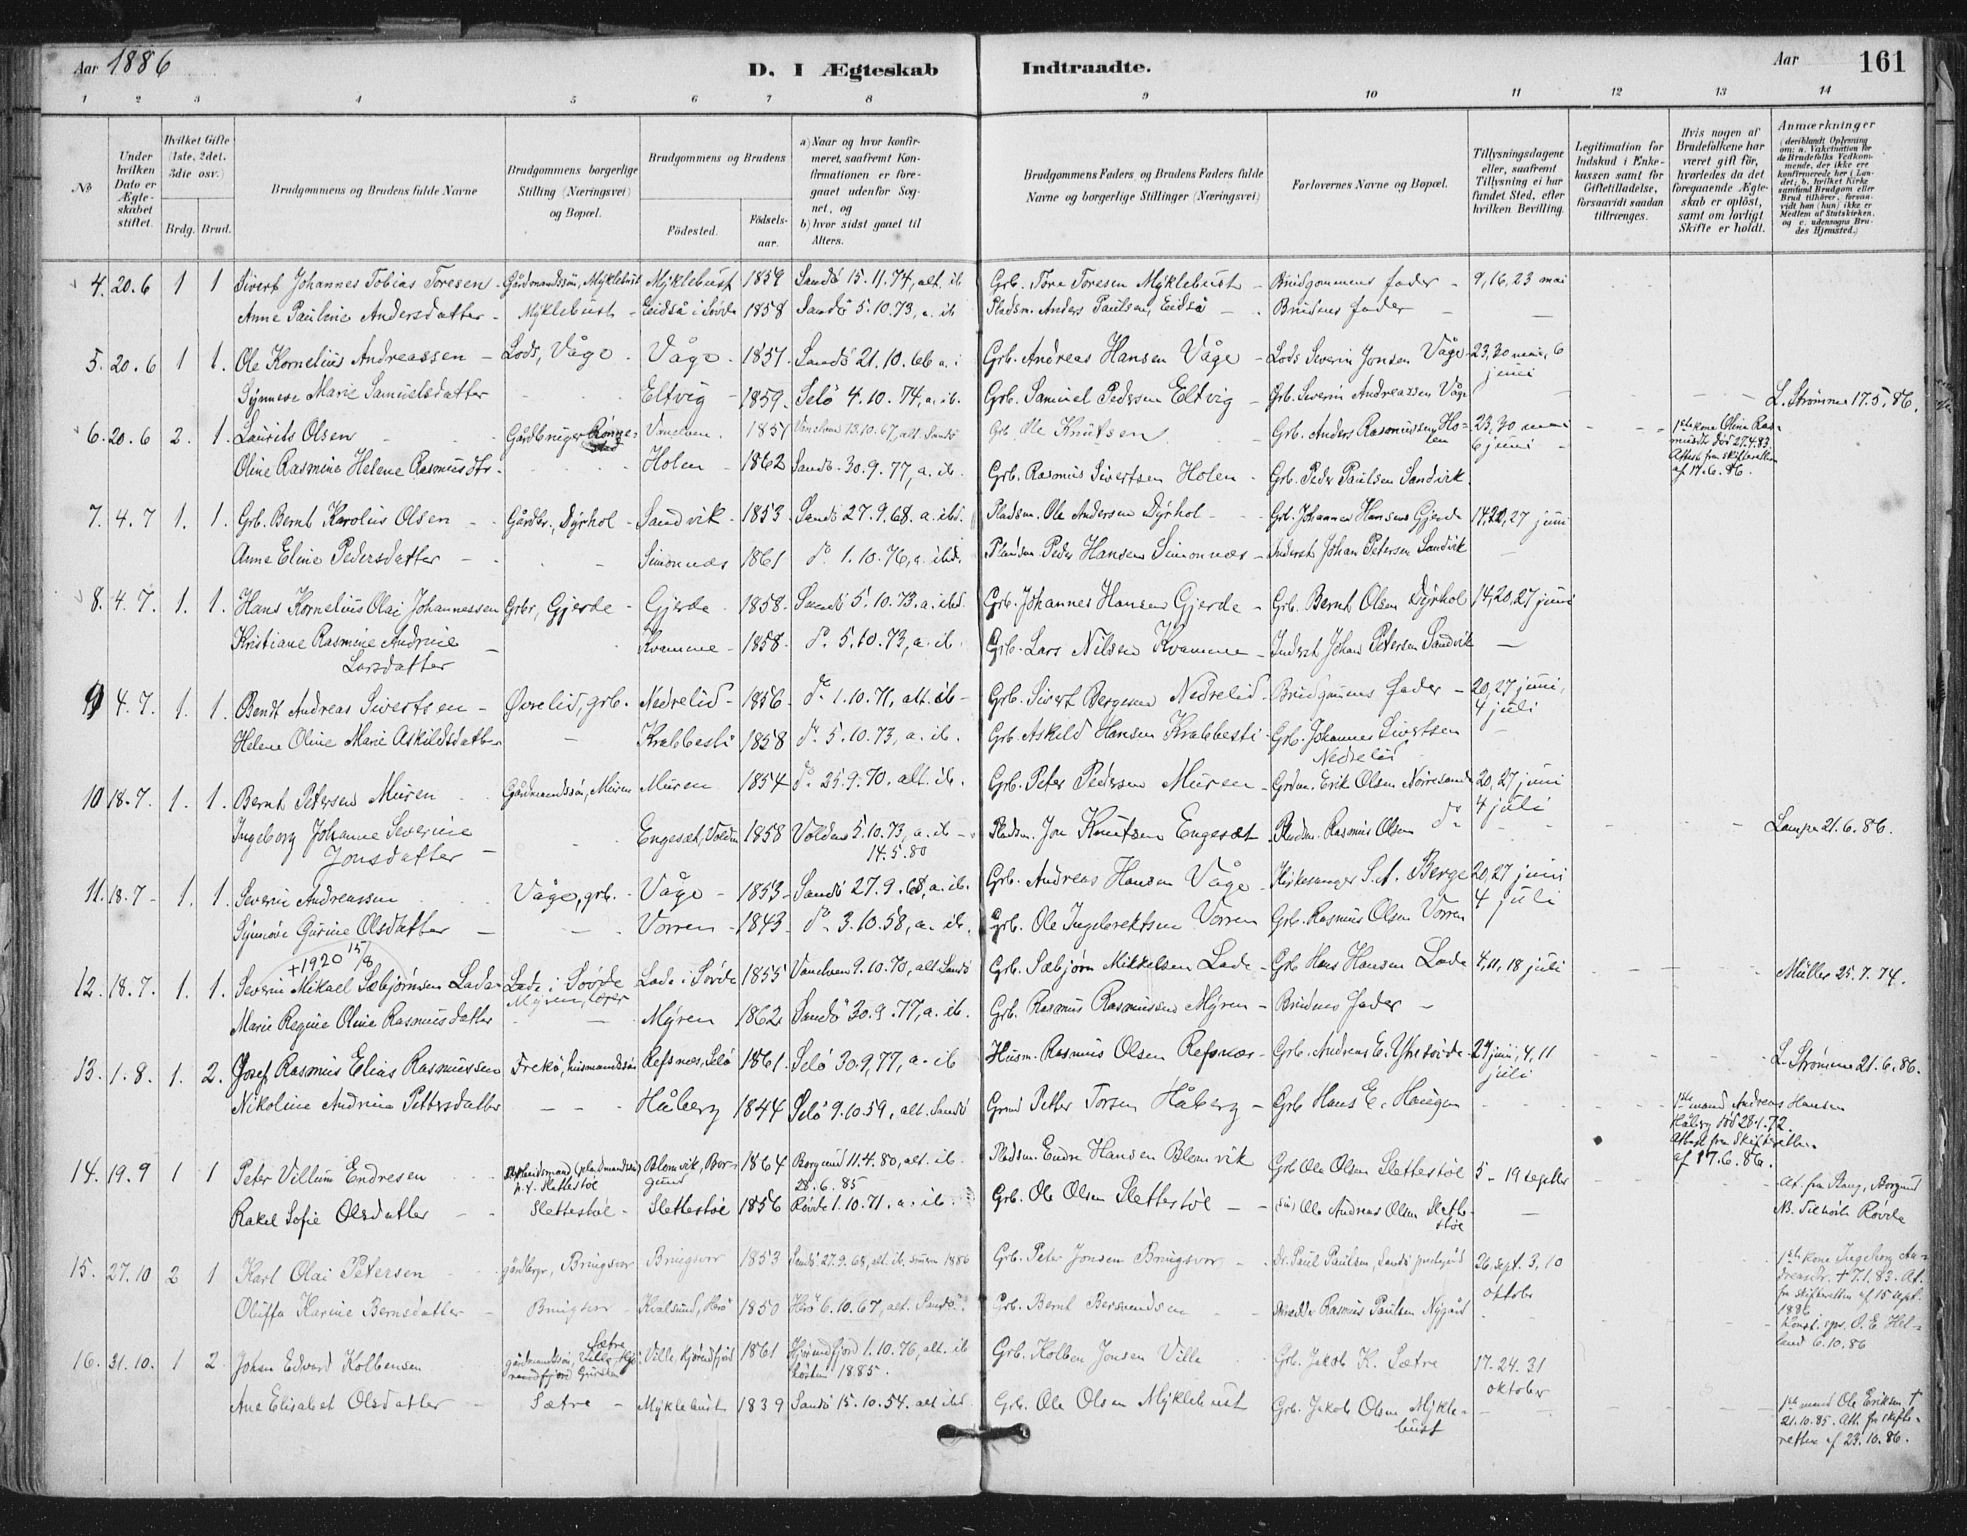 Aar 1886 D. I Ægteskab Indtraadte. Aar 161
1 2 3 4 5 6 7 8 9 10 11 12 13 14
No
Under hvilken Dato er Ægteskabet stiftet.
Hvilket Gifte (1ste, 2det, 3die osv.)
Brdg. Brud.
Brudgommens og Brudens fulde Navne
Brudgommens borgerlige Stilling (Næringsvei) og Bopæl.
Brudgommens og Brudens
Fødested. Fødselsaar.
a) Naar og hvor konfirmeret, saafremt Konfirmationen er foregaaet udenfor Sognet, og b) hvor sidst gaaet til Alters.
Brudgommens Faders og Brudens Faders fulde Navne og borgerlige Stillinger (Næringsvei)
Forlovernes Navne og Bopæl.
Tillysningsdagene eller, saafremt Tillysning ei har fundet Sted, efter hvilken Bevilling.
Legitimation for Indskud i Enkekassen samt for Giftetilladelse, forsaavidt saadan tiltrænges.
Hvis nogen af Brudefolkene har været gift før, hvorledes da det foregaaende Ægteskab er opløst, samt om lovligt Skifte er holdt.
Anmærkninger (deriblandt Oplysning om: a. Vakcination for de Brudefolks Vedkommende, der ikke ere konfirmerede her i Landet; b. hvilket Kirkesamfund Brudgom eller Brud tilhører, forsaavidt han (hun) ikke er Medlem af Statskirken, og c. udensogns Brudes Hjemsted.)
4. 20.6 1 1 Sivert Johannes Tobias Toresen - Gårdmandssøn, Myklebust Myklebust 1859 Sandö 15.11.74, alt. ib Grb. Tore Toresen Myklebust - Brudgommens fader - 9, 16, 23 mai
Anne Pauline Andersdatter - Myklebust - Eidså i Søvde 1858 Sandö 5.10.73, a. ib Pladsm. Anders Paulsen, Eidså - Brudens fader -
5. 20.6 1 1. Ole Kornelius Andreassen - Lods, Våge - Våge - 1851 Sandö 21.10.66 a. i Grb. Andreas Hansen Våge - Lods Severin Jonsen Våge 23, 30 mai, 6 juni
Synneve Marie Samuelsdatter Eltvig - 1859. Selö 4.10.74, a. ib. Grb. Samuel Pedersen Eltvig - Grb. Severin Andreassen Våge L. Strømme 17.5.86.
6. 20.6 2. 1. Laurits Olsen Gårdbruger Rønnestad Vanelven. 1851 Vanelven 13.10.67, alt. Sandö Grb. Ole Knutsen - Grb. Anders Rasmussen Holen 23, 30 mai 6 juni 1ste kone Oline Rasmusdtr død 27.4.83. Attest fra skifteretten af 17.6.86.
Oline Rasmine Helene Rasmusdtr. Holen - 1862 Sandö 30.9.77, a. ib. Grb. Rasmus Sivertsen Holen - Grb. Peder Paulsen Sandvik.
7. 4.7 1. 1. Grb. Bernt Karolius Olsen - Gårdbr., Dyrhol - Sandvik - 1853. Sandö 27.9.68. a. ibd. Pladsm. Ole Andersen Dyrhol - Grb. Johannes Hansens Gjerde 14, 20, 27 juni
Anne Eline Pedersdatter - Simonnæs 1861 do 1.10.76, a. ibd. Pladsm Peder Hansen Simonnæs - Inderst Johan Petersen Sandvik
8. 4.7. 1. 1. Hans Kornelius Olai Johannessen Grbr, Gjerde - Gjerde - 1858. Sandö 5.10.73. a. ibd. Grb. Johannes Hansen Gjerde - Grb. Bernt Olsen Dyrhol 14, 20, 27 juni
Kristiane Rasmine Andrine Larsdatter Kvamme - 1858. do 5.10.73, a. ib. Grb. Lars Nilsen Kvamme - Inderst Johan Petersen Sandvik
9 4.7. 1. 1. Bendt Andreas Sivertsen - Øvrelid, grb. Nedrelid - 1856 do 1.10.71, alt. ib - Grb. Sivert Bergesen Nedrelid - Brudgommens fader - 20, 27 juni, 4 juli
Helene Oline Marie Askildsdatter Krabbesti 1858 do 5.10.73, a. ib. Grb. Askild Hansen Krabbesti - Grb. Johannes Sivertsen Nedrelid
10 18.7. 1. 1. Bernt Petersen Muren Gårdmandssøn, Muren Muren 1854 do 25.9.70. alt. ib. Grb. Peter Pedersen Muren - Grdm. Erik Olsen Nørresande 20, 27 juni 4 juli
Ingeborg Johanne Severine Jonsdatter - Engesæt, Volden 1858 Volden 5.10.73, a. ib - 14.5.80 Pladsm. Jon Knutsen Engesæt Pladsm. Rasmus Olsen do Lampe 21.6.86.
11. 18.7 - 1. 1. Severin Andreassen Våge, grb. - Våge - 1853 - Sandö 27.9.68, a. ib. Grb. Andreas Hansen Våge - Kirkesanger S. A. Berge 20, 27 juni 4 juli
Synnøve Gurine Olsdatter - Vorren - 1843 - do 3.10.58, a. ib. Grb. Ole Ingebrektsen Vorren Grb. Rasmus Olsen Vorren
+1920 15/8
12. 18.7. 1. 1. Severin Mikael Sæbjørnsen Lade - Lade i Søvde Myren, løper Lade i Søvde 1855 Vanelven 9.10.70, alt. Sandö Grb. Sæbjørn Mikkelsen Lade - Grb Hans Hansen Lade 4, 11, 18 juli Müller 25.7.74.
Marie Regine Oline Rasmusdatter Myren 1862 Sandö 30.9.77, a. ib. Grb. Rasmus Rasmussen Myren - Brudens fader -
13. 1.8. 1. 2. Josef Rasmus Elias Rasmussen Frekö, husmandssøn Refsnæs, Selö 1861. Selö 30.9.77, a. ib Husm. Rasmus Olsen Refsnæs - Grb. Andreas E. Ytrestöide - 27 juni, 4, 11 juli L. Strømme 21.6.86.
Nikoline Andrine Pettersdatter - Håberg 1844 Selö 9.10.59, alt. Sandö Grmd Petter Torsen Håberg - Grb Hans E. Haugen 1ste mand Andreas Hansen Håberg død 28.1.72. Attest fra skifteretten af 17.6.86.
14. 19.9 1 1 Peter Villum Endresen p. t. Slettestöl Blomvik, Borgund 1864 Borgund 11.4.80, alt. ib. 28.6.85 Pladsm. Endre Hansen Blomvik Grb Ole Olsen Slettestöl 5 - 19 septbr At. fra Borgund
Rakel Sofie Olsdatter Slettestöl - Slettestöl 1856 Røvde 1.10.71. a. ib. Grb. Ole Olsen Slettestöl - Ole Andreas Olsen Slettestöl NB. Tilhörer Røvde
15. 27.10 2 1 Karl Olai Petersen gårdbrgr, Bringsvor Bringsvor 1853 Sandö 27.9.68, alt. ib. 1886 Grb. Peter Jonsen Bringsvor - Dr. Paul Paulsen, Sandö prestegård 26 sept. 3, 10 oktobr 1ste kone Ingeborg Andreasdr. +7.1.83. At. fra skifteretten af 15 sept. 1886
Oluffa Karine Berntsdatter - Bringsvor - Kvalsund, Herö 1850 Herö 6.10.67, alt. Sandö. Grb. Bernt Berntsen Skrædder Rasmus Paulsen Nygård Konst. sps. O. E. Helland 6.10.86
16. 31.10. 1 2 Johan Edvard Kolbensen gårdmandssøn, Ville, Hjörundfjord Gursken Sætre Ville, Hjörundfjord 1861 Hjörundfjord 1.10.76, alt. ib høsten 1885. Grb. Kolben Jonsen Ville Grb. Jakob K. Sætre 17. 24. 31 oktober
Ane Elisabet Olsdatter - Sætre - Myklebust 1839 Sandö 15.10.54. alt ibd. Grb. Ole Olsen Myklebust Grb. Jakob Olsen Myklebust 1ste mand Ole Eriksen † 21.10.85. Att. fra skifteretten af 23.10.86.